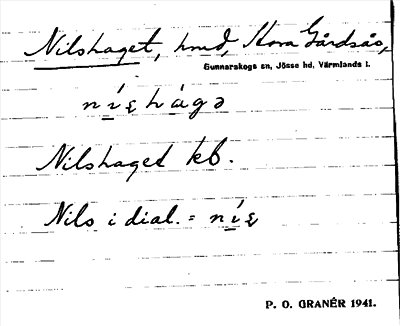 Nilshaget, hmd, Stora Gårdsås,
Gunnarskogs sn, Jösse hd, Värmlands l.
Nilshaget kb.
Nils i dial. =
P. O. GRANÉR 1941.